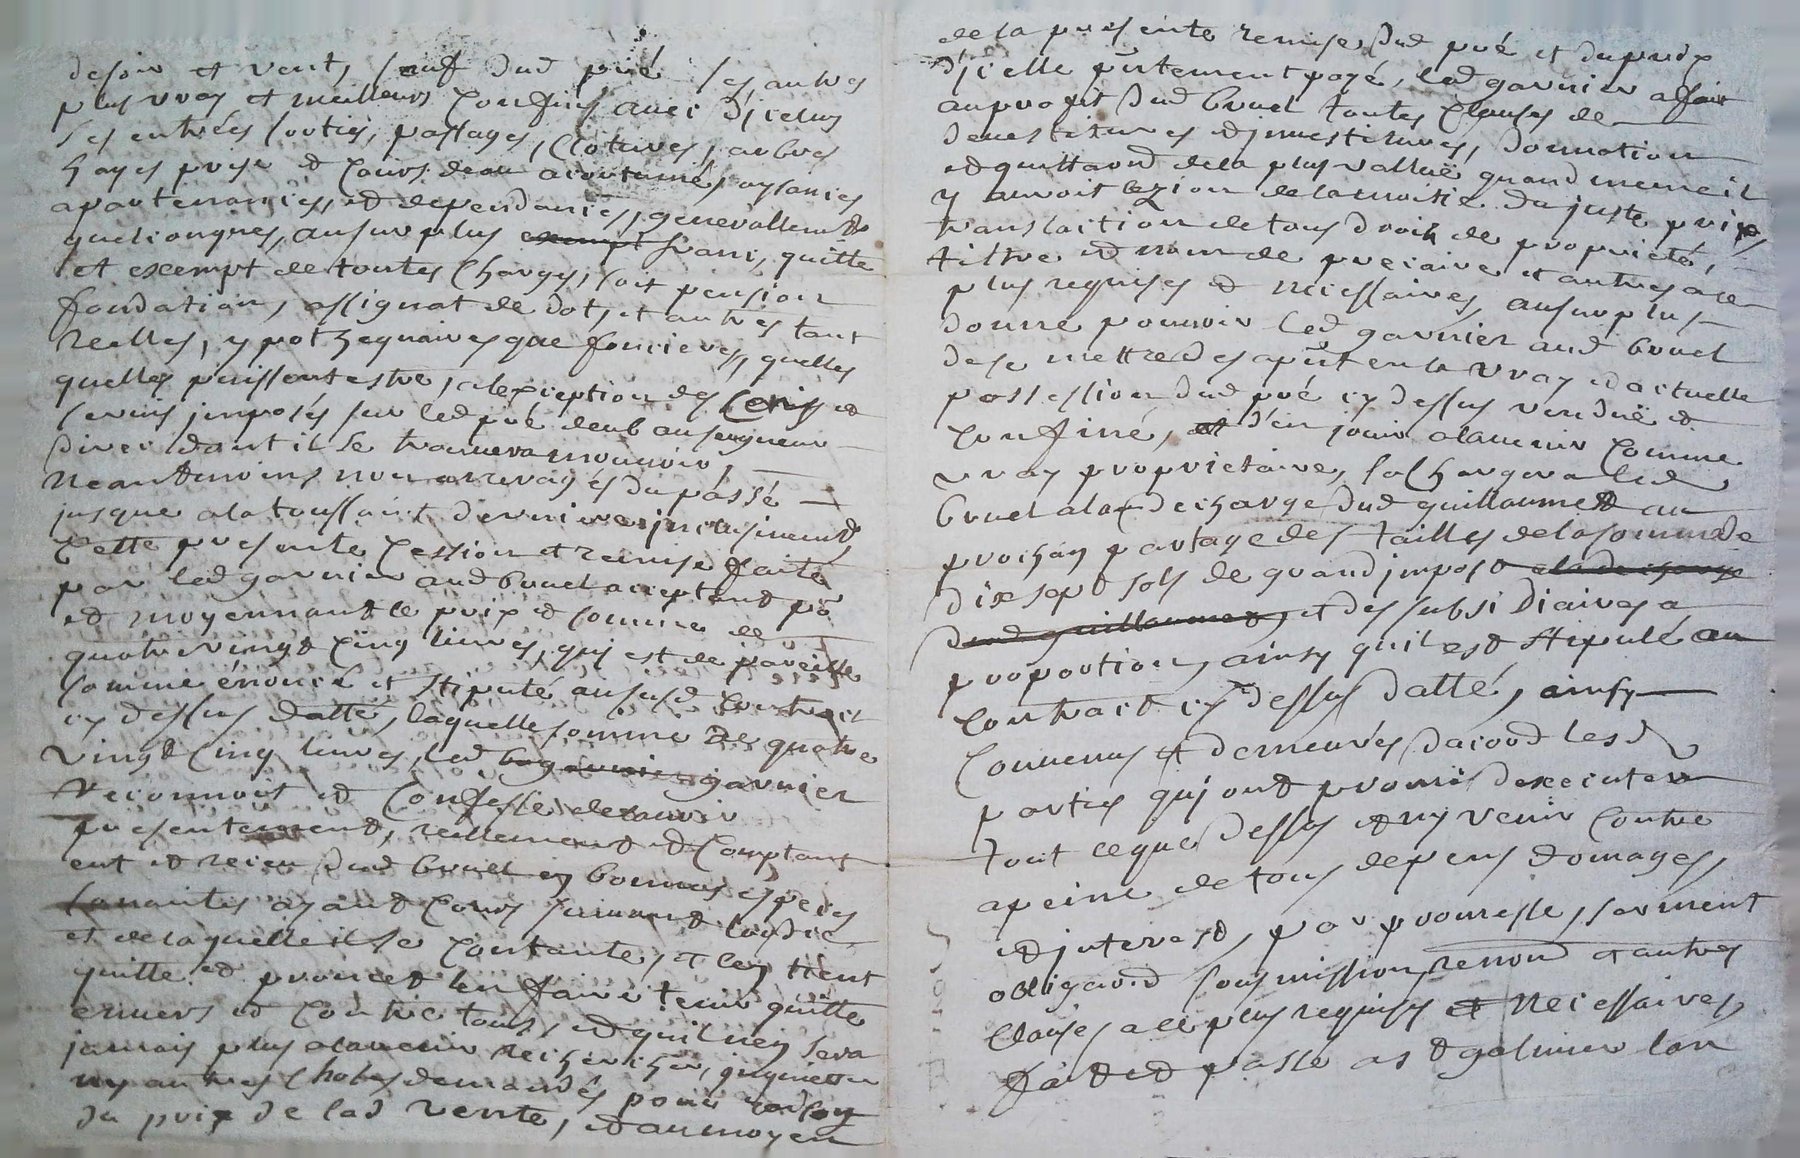 de soir et vent, sauf dud pré ses autres
plus vray et meilleurs Confins avec d'jcelluy
ses entrées sorties, passages, Clotures, arbres
hayes prise et Cours deau acoutumé, aysances
apartenances, et dependances, generallemt
quelconques, au surplus exempt franc, quitte
et exempt de toutes Charges, soit pension
fondation, assignat de dot, et autres tant
reelles, ypothequaires que foncieres, quelles
quelles puissent estre, a lexception des Cens et
servis jmposés sur led pré deub au seigneur
direc dont il se trouvera mouvoir,
Neantmoins non arrerages du passé
jusque a la toussaint derniere jnclusivement,
Cette presente Cession et remise faite
par led garnier aud bruel acceptant po
et moyennant le prix et somme de
quatre vingt Cinq livres, quj est de pareille
somme énoncé et stipulé au susd Contract
cy dessus datté, laquelle somme de quatre
vingt Cinq livres, led garnier
reconnoit et Confesse de avoir
presentement, reellement et Comptant
eut et receu dud bruel en bonnes especes
sonantes ayant Cours suivant Lordce
et de laquelle il se Contante, et len tient
quitte et promet len faire tenir quitte
envers et Contre tous, et quil nen sera
jamais plus alavenir recherché, jnquietté
ny autres Choses demandés pour raison
du prix de lad vente, et au moyen
de la presente remise dud pré et du prix
d'jcelle prtement payé, led garnier a fait
au profit dud bruel toutes Clauses de
devestitures et jnvestitures, donnation
et quittance de la plus vallue quand meme il
y auroit lezion de la moitié du juste prix,
translaition de tous droits de proprieté,
tiltre et nom de precaire et autres a ce
plus requises et necessaires, au surplus
donne pouvoir led garnier aud bruel
de se mettre des aprt en la vray et actuelle
possession dud pré cy dessus vendue et
Confiné, et d'en jouir alavenir Comme
vray proprietaire, se Chargera led
bruel a la decharge dud guillaumet au
prochain partage des tailles de la somme de
dix sept sols de grand jmpost a la decharge
dud guillaumet, et des subsidiaires a
proportion, ainsy quil est stipulé au
Contract cy dessus datté, ainsy
Convenus et demeurés dacord lesd
parties quj ont promis dexecuter
tout ce que dessus et ny venir Contre
a peine de tous depens domages,
et jnterest, par promesse, serment
obligaon sousmission, renon et autres
Clauses a ce plus requises et Necessaires,
fait et passé a st galmier lan